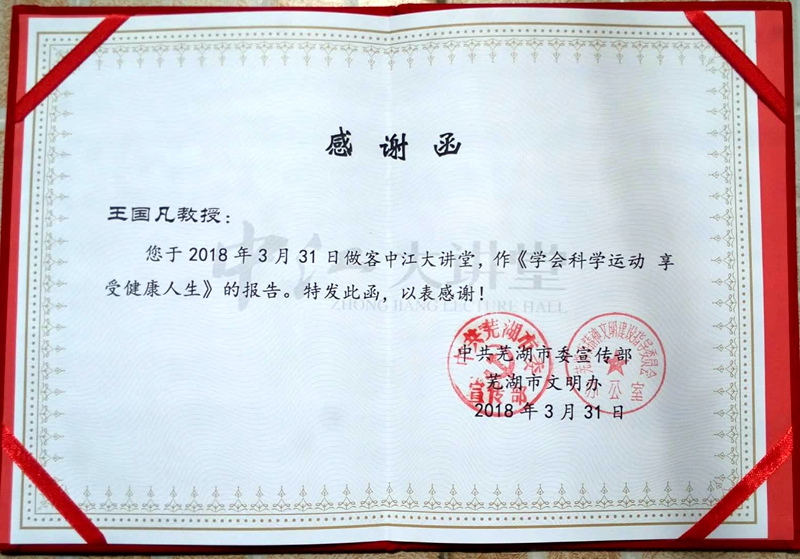 感谢函
王国凡教授：
您于2018年3月31日做客中江大讲堂，作《学会科学运动 享
受健康人生》的报告。特发此函，以表感谢！
中江大讲堂
ZHONG JIANG LECTURE HALL
中共芜湖市委宣传部
芜湖市文明办
2018年3月31日
中共芜湖市委
宣传部
芜湖市精神文明建设指导委员会
办公室